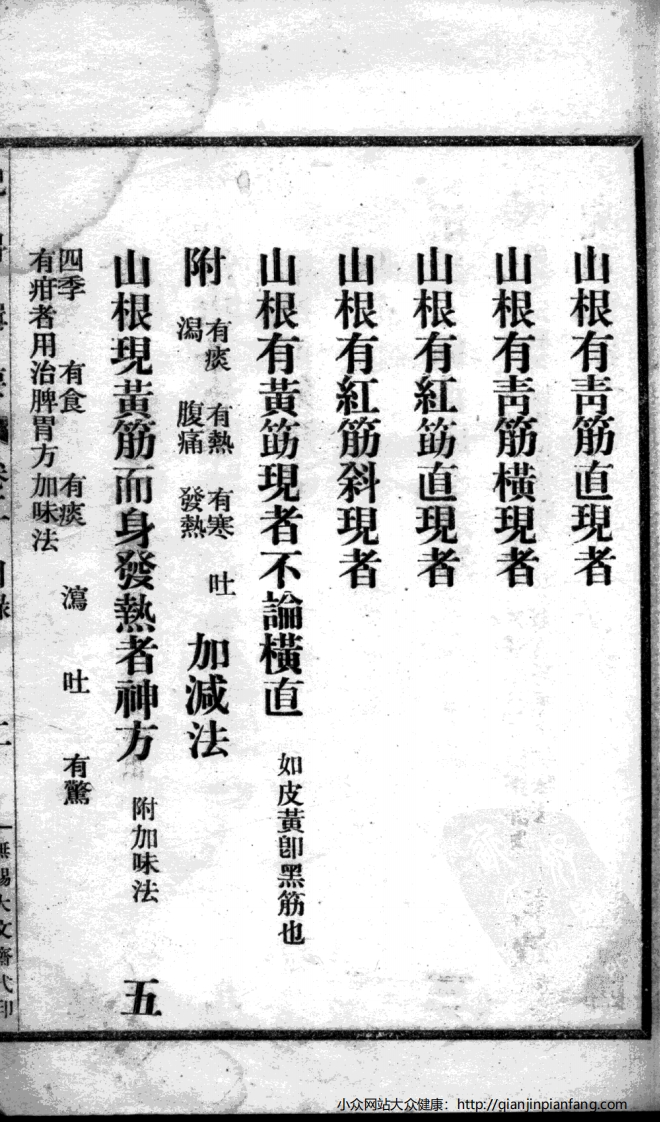 山根有靑筋直現者
山根有靑筋橫現者
山根有紅筋直現者
山根有紅筋斜現者
山根有黃筋現者不論橫直 如皮黃卽黑筋也
附 有痰 有熱 有寒 吐 瀉 腹痛 發熱 加減法
山根現黃筋而身發熱者神方 附加味法 五
四季 有食 有痰 瀉 吐 有驚
有疳者用治脾胃方加味法
無錫大文齋代印
小众网站大众健康：http://qianjinpianfang.com/